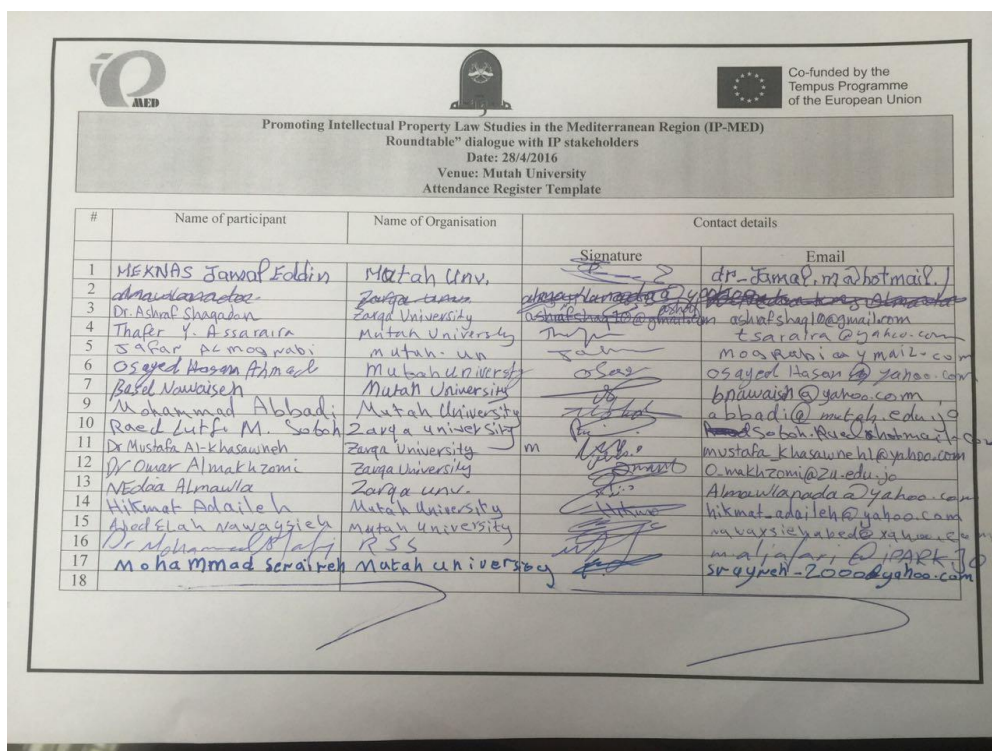 iP
MED
Co-funded by the
Tempus Programme
of the European Union
Promoting Intellectual Property Law Studies in the Mediterranean Region (IP-MED)
Roundtable” dialogue with IP stakeholders
Date: 28/4/2016
Venue: Mutah University
Attendance Register Template
# Name of participant Name of Organisation Contact details
Signature Email
1 MEKNAS Jamal Eddin Mutah Unv. dr_Jamal.m@hotmail.
2 Zarqa
3 Dr. Ashraf Shaqadan Zarqa University ashrafshaq10@gmail.com ashrafshaq10@gmail.com
4 Thafer Y. Assaraira Mutah University tsaraira@yahoo.com
5 Jafar ALmograbi mutah. un mograbi@ymail.com
6 Osayed Hasan Ahmad Mutah University Osayed Hasan@yahoo.com
7 Basel Nawaiseh Mutah University bnawaish@yahoo.com
9 Mohammad Abbadi Mutah University abbadi@mutah.edu.jo
10 Raed Lutfi M. Saboh Zarqa university
11 Dr Mustafa Al-khasawneh Zarqa University m mustafa_khasawneh1@yahoo.com
12 Dr Omar Almakhzomi Zarqa University O.makhzomi@zu.edu.jo
13 NEdaa Almawla Zarqa unv. Almawlanada@yahoo.com
14 Hikmat Adaileh Mutah University hikmat_adaileh@yahoo.com
15 Abed ELah Nawaysieh Mutah University
16 Dr Mohammad RSS
17 Mohammad Seraireh Mutah university srayreh-2000@yahoo.com
18